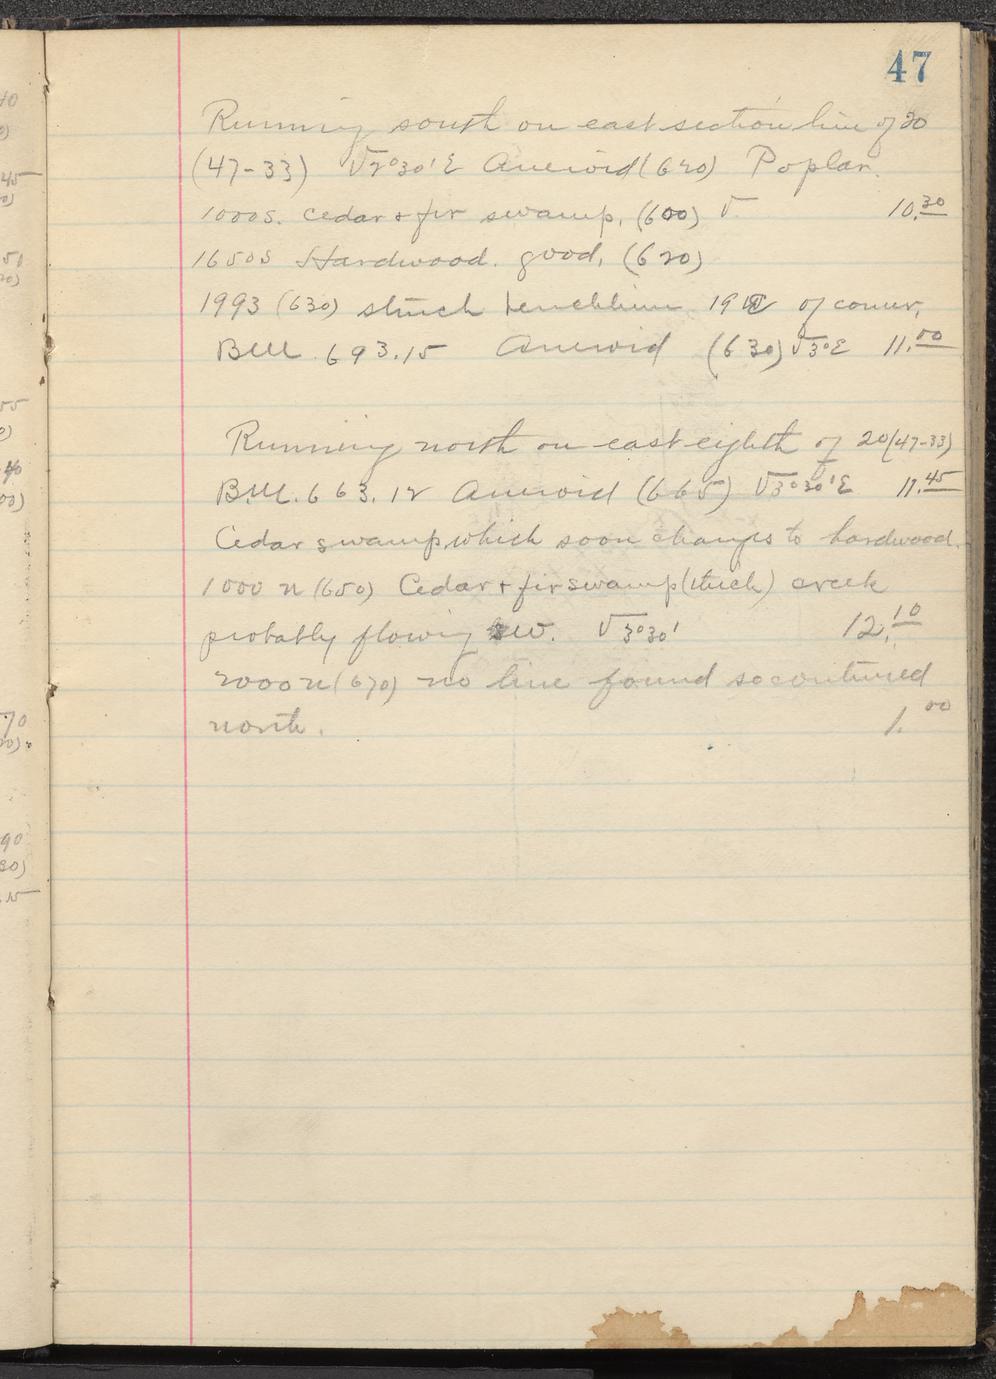 47
Running south on east section line of 20
(47-33) V2°30'E Aneroid (620) Poplar.
1000 S. Cedar & fir swamp, (600) V. 10.30
1650 S Hardwood. good, (620)
1993 (630) struck benchline 19 of corner,
B.M. 693.15 Aneroid (630) V3°E 11.00
Running north on east eighth of 20 (47-33)
B.M. 663.12 Aneroid (665) V3°30'E 11.45
Cedar swamp, which soon changes to hardwood.
1000 N (650) Cedar & fir swamp (thick) creek
probably flowing SW. V3°30' 12.10
2000 N (670) no line found so continued
north. 1.00
40
0)
45
0)
50
20)
55
0)
40
00)
70
20).
90
30)
.15